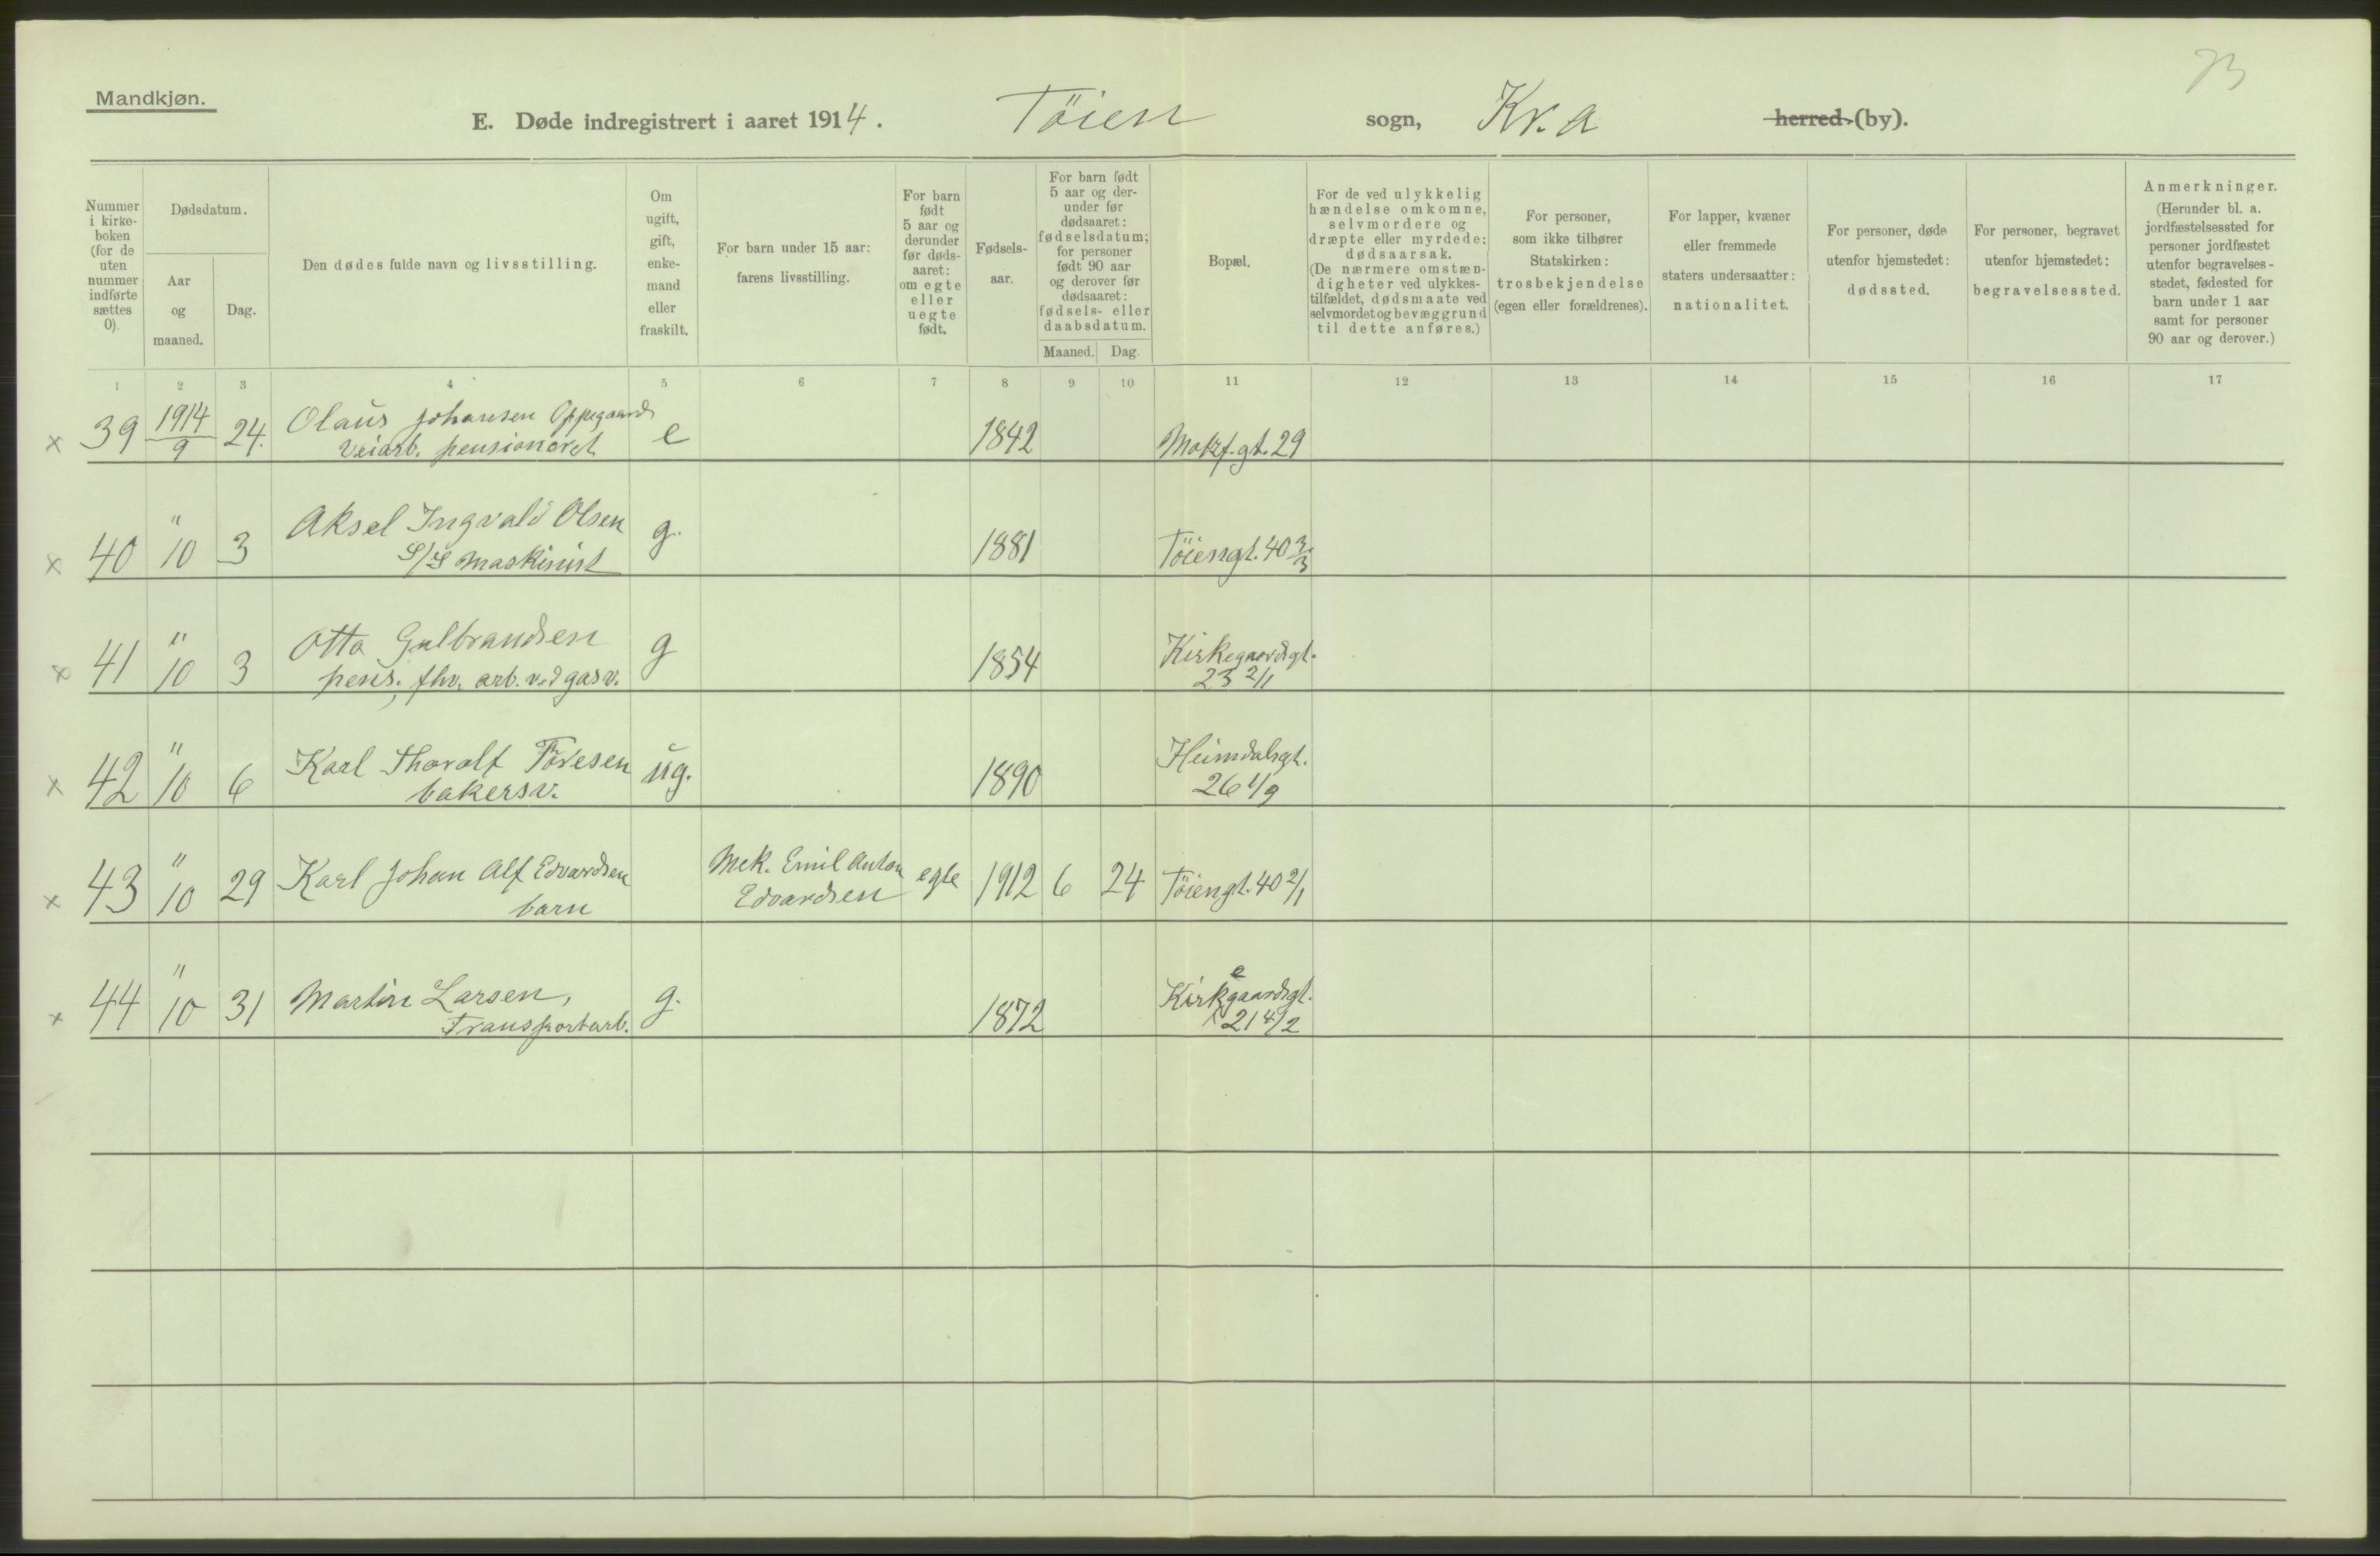 73
Mandkjøn.
E. Døde indregistrert i aaret 1914. Töien sogn, Kr.a herred (by).
Nummer i kirke-boken (for de uten nummer indførte sættes 0).
Dødsdatum.
Aar og maaned.
Dag.
Den dødes fulde navn og livsstilling.
Om ugift, gift, enke-mand eller fraskilt.
For barn under 15 aar: farens livsstilling.
For barn født 5 aar og derunder før døds-aaret: om egte eller uegte født.
Fødsels-aar.
For barn født 5 aar og der-under før dødsaaret: fødselsdatum; for personer født 90 aar og derover før dødsaaret: fødsels- eller daabsdatum.
Maaned. Dag.
Bopæl.
For de ved ulykkelig hændelse omkomne, selvmordere og dræpte eller myrdede: dødsaarsak. (De nærmere omstæn-digheter ved ulykkes-tilfældet, dødsmaate ved selvmordet og bevæggrund til dette anføres.)
For personer, som ikke tilhører Statskirken: trosbekjendelse (egen eller forældrenes).
For lapper, kvæner eller fremmede staters undersaatter: nationalitet.
For personer, døde utenfor hjemstedet: dødssted.
For personer, begravet utenfor hjemstedet: begravelsessted.
Anmerkninger. (Herunder bl. a. jordfæstelsessted for personer jordfæstet utenfor begravelses-stedet, fødested for barn under 1 aar samt for personer 90 aar og derover.)
1 2 3 4 5 6 7 8 9 10 11 12 13 14 15 16 17
x 39 1914/9 24. Olaus Johansen Oppegaard e 1842 Motzf.gt. 29
Veiarb. pensioneret
x 40 " 10 3 Aksel Ingvald Olsen g. 1881 Töiengt. 40 3/3
S/S maskinist
x 41 " 10 3 Otto Gulbrandsen g 1854 Kirkegaardsgt.
pens. fhv. arb. ved gasv. 23 2/1
x 42 " 10 6 Karl Thoralf Töresen ug. 1890 Heimdalsgt.
bakersv. 26 1/9
x 43 " 10 29 Karl Johan Alf Edvardsen Mek. Emil Anton egte 1912 6 24 Töiengt. 40 2/1
barn Edvardsen
x 44 " 10 31 Martin Larsen, g. 1872 Kirkegaardsgt.
Transportarb. 21 4/2